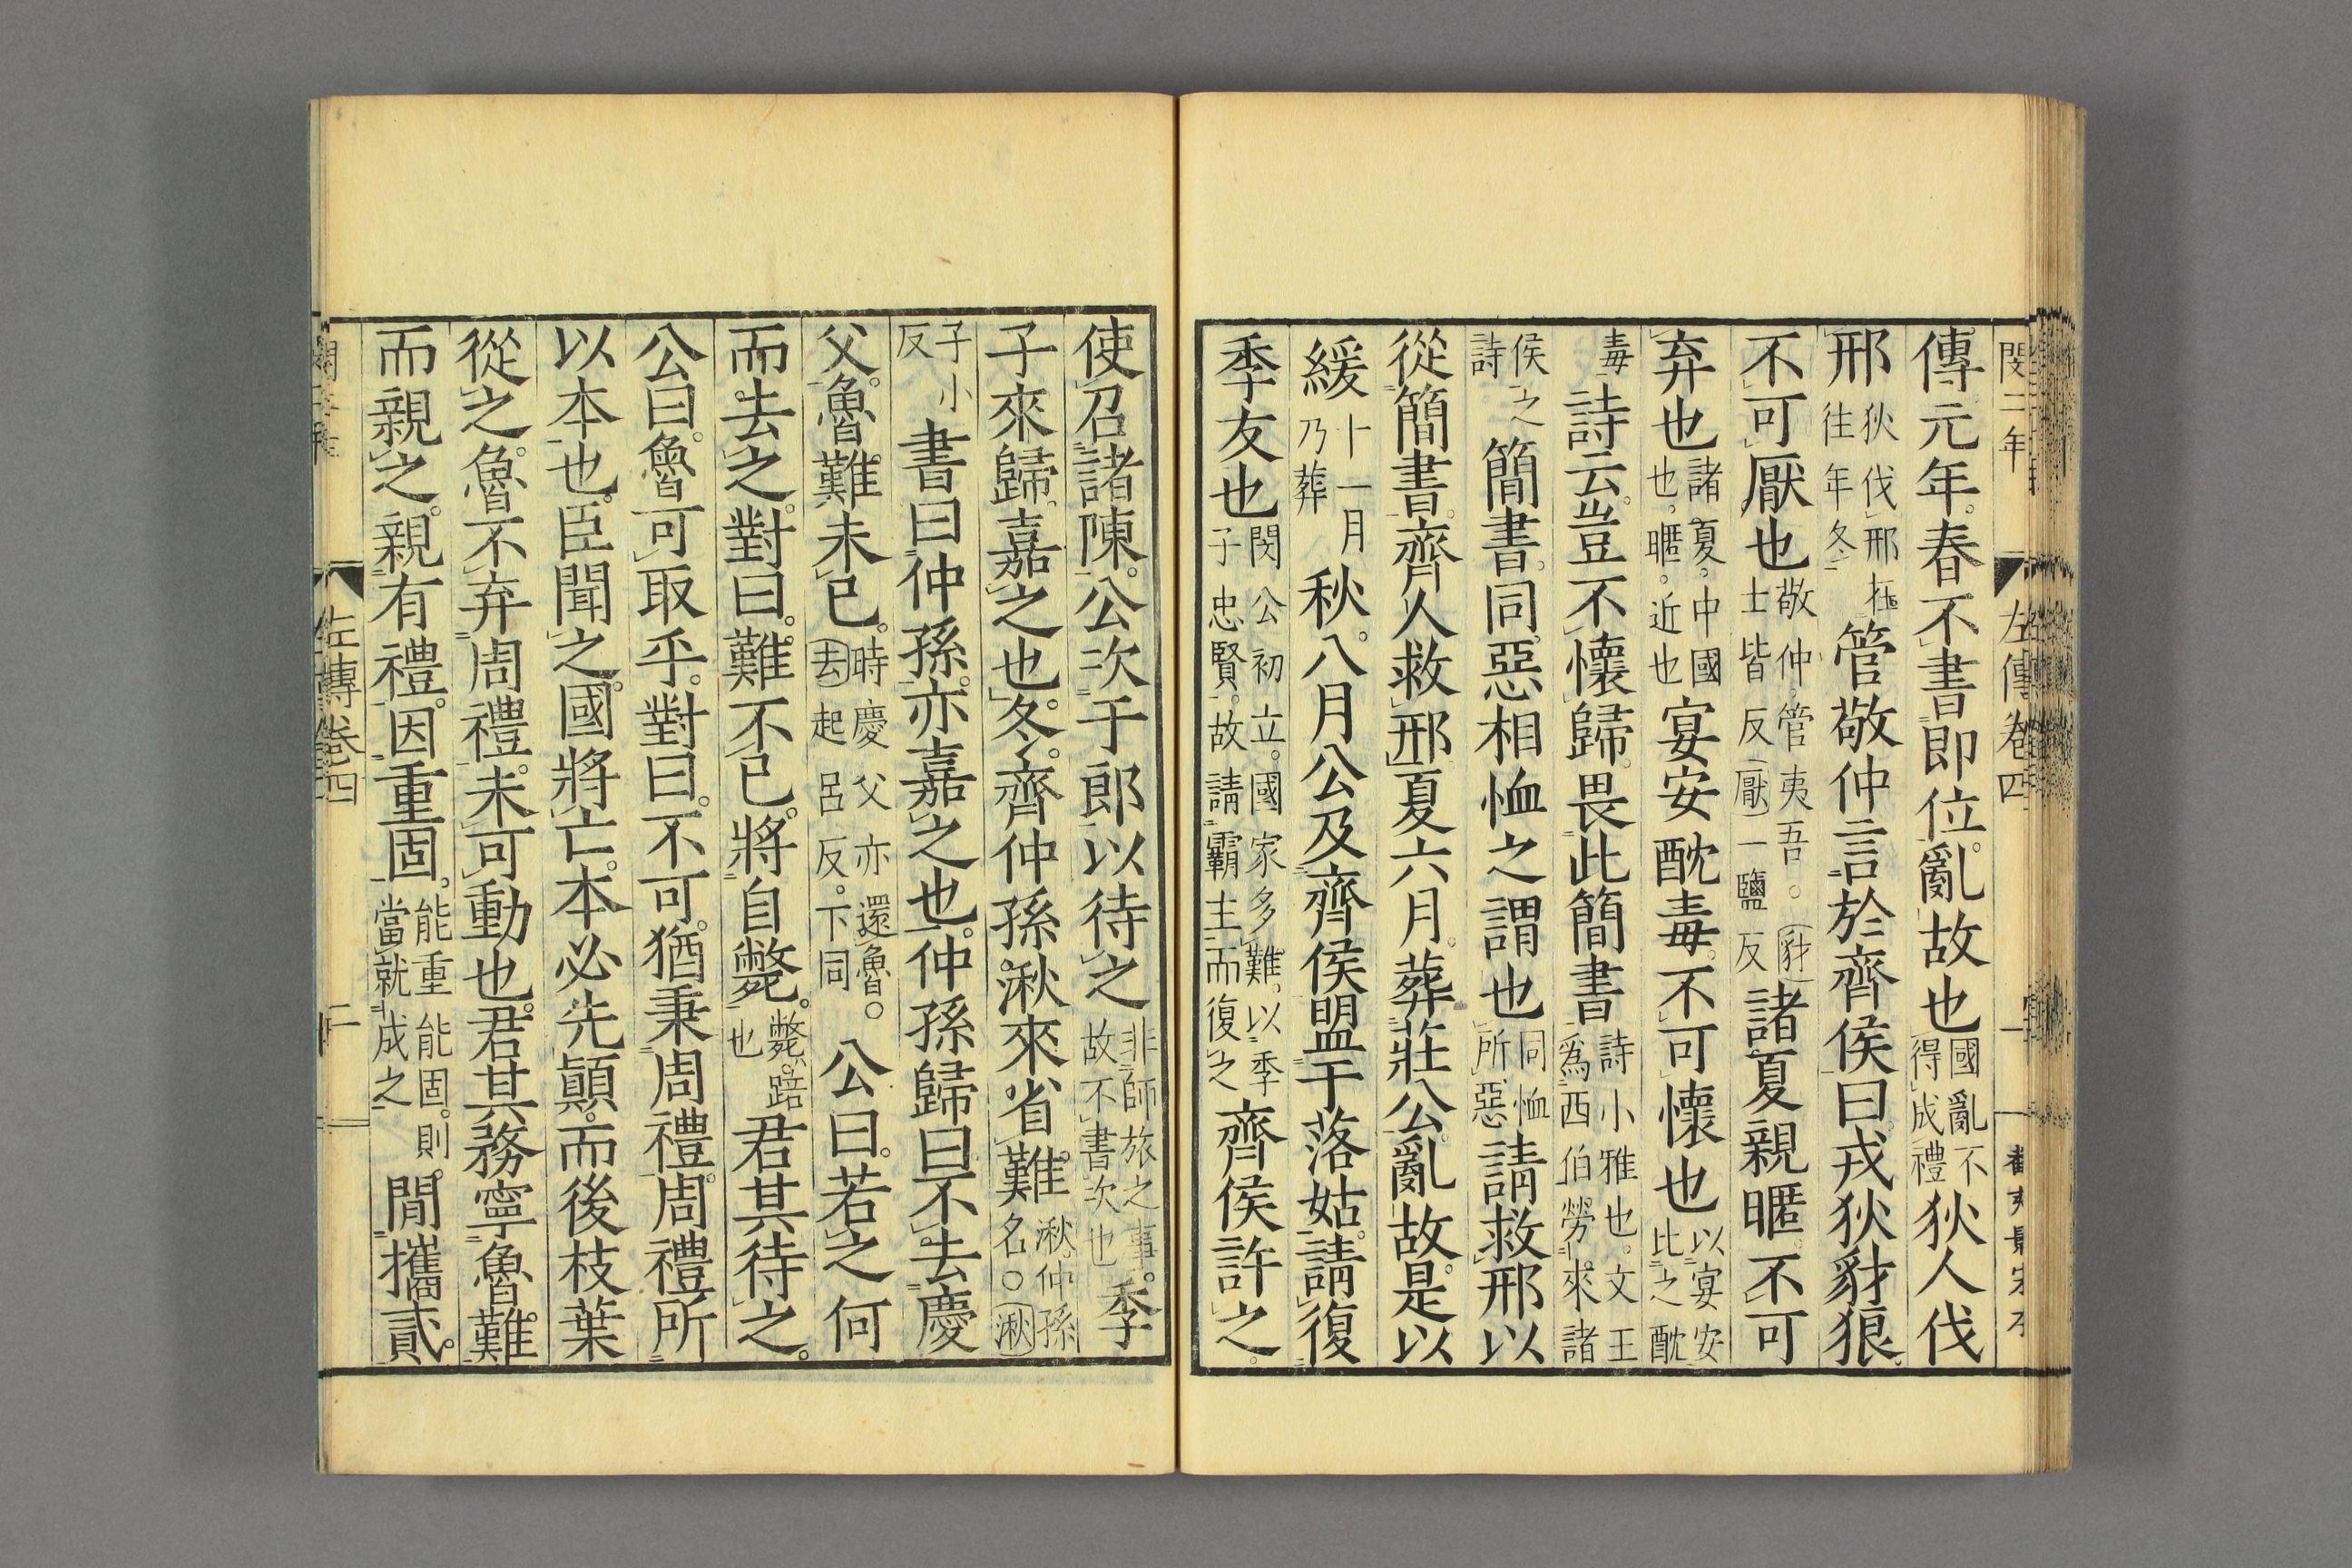 閔二年　左傳卷四　一
傳元年。春不書即位。亂故也國亂不得成禮狄人伐
邢狄伐邢在往年冬管敬仲言於齊侯曰。戎狄豺狼。
不可厭也敬仲。管夷吾。○豺士皆反厭一鹽反諸夏親暱。不可
弃也諸夏。中國也。暱。近也宴安酖毒。不可懷也以宴安比之酖
毒詩云。豈不懷歸。畏此簡書詩小雅也。文王爲西伯勞來諸
侯之詩簡書。同惡相恤之謂也同恤所惡請救邢以
從簡書。齊人救邢夏六月。葬莊公。亂故。是以
緩十一月乃葬秋。八月公及齊侯盟于落姑。請復
季友也閔公初立。國家多難。以季子忠賢。故請霸主而復之齊侯許之。
使召諸陳。公次于郎以待之非師旅之事。故不書次也季
子來歸。嘉之也。冬。齊仲孫湫來省難湫。仲孫名。○湫
子小反書曰仲孫。亦嘉之也。仲孫歸曰不去慶
父。魯難未已。時慶父亦還魯。○去起呂反。下同公曰。若之何
而去之。對曰。難不已。將自斃。斃。踣也君其待之。
公曰。魯可取乎。對曰。不可。猶秉周禮。周禮所
以本也。臣聞之。國將亡。本必先顛。而後枝葉
從之。魯不弃周禮。未可動也。君其務寧魯難
而親之。親有禮。因重固。能重能固。則當就成之閒攜貳。
左傳卷四　二